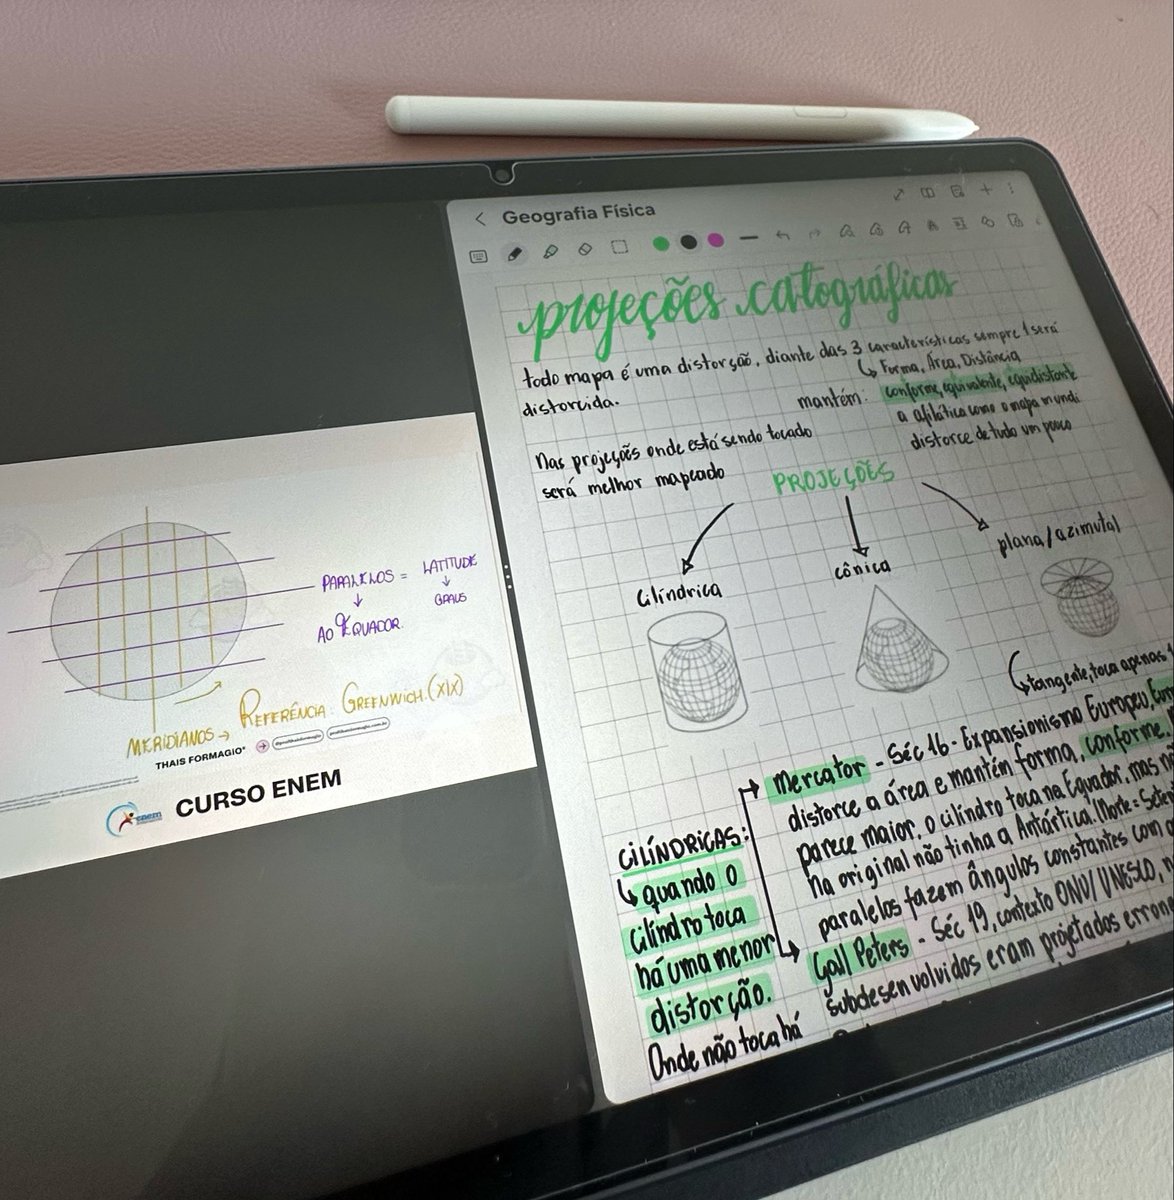 PARALELOS = LATITUDE
GRAUS
AO EQUADOR.
MERIDIANOS → REFERÊNCIA: GREENWICH (XIX)
THAIS FORMAGIO
enem
CURSO ENEM
Geografia Física
projeções catográficas
todo mapa é uma distorção, diante das 3 características sempre 1 será
↳ Forma, Área, Distância
distorcida.
mantém: conforme, equivalente, equidistante
a afilática como o mapa mundi
distorce de tudo um pouco
Nas projeções onde está sendo tocado
será melhor mapeado
PROJEÇÕES
cilíndrica
cônica
plana/azimutal
↳ tangente, toca apenas 1
CILÍNDRICAS:
↳ quando o
cilindro toca
há uma menor
distorção.
Onde não toca há
Mercator - Séc 16 - Expansionismo Europeu,
distorce a área e mantém forma, conforme.
parece maior. O cilindro toca na Equador, mas
na original não tinha a Antártica. (Norte =
paralelos fazem ângulos constantes com
Gall Peters - Séc 19, contexto ONU/UNESCO,
subdesenvolvidos eram projetados